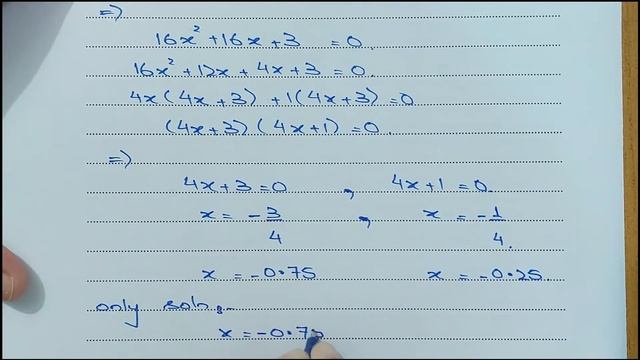 =>
16x² + 16x + 3 = 0.
16x² + 12x + 4x + 3 = 0.
4x(4x+3) + 1(4x+3) = 0
(4x+3)(4x+1) = 0.
=>
4x+3 = 0 , 4x+1 = 0.
x = -3/4 , x = -1/4.
x = -0.75 x = -0.25.
only soln:-
x = -0.75